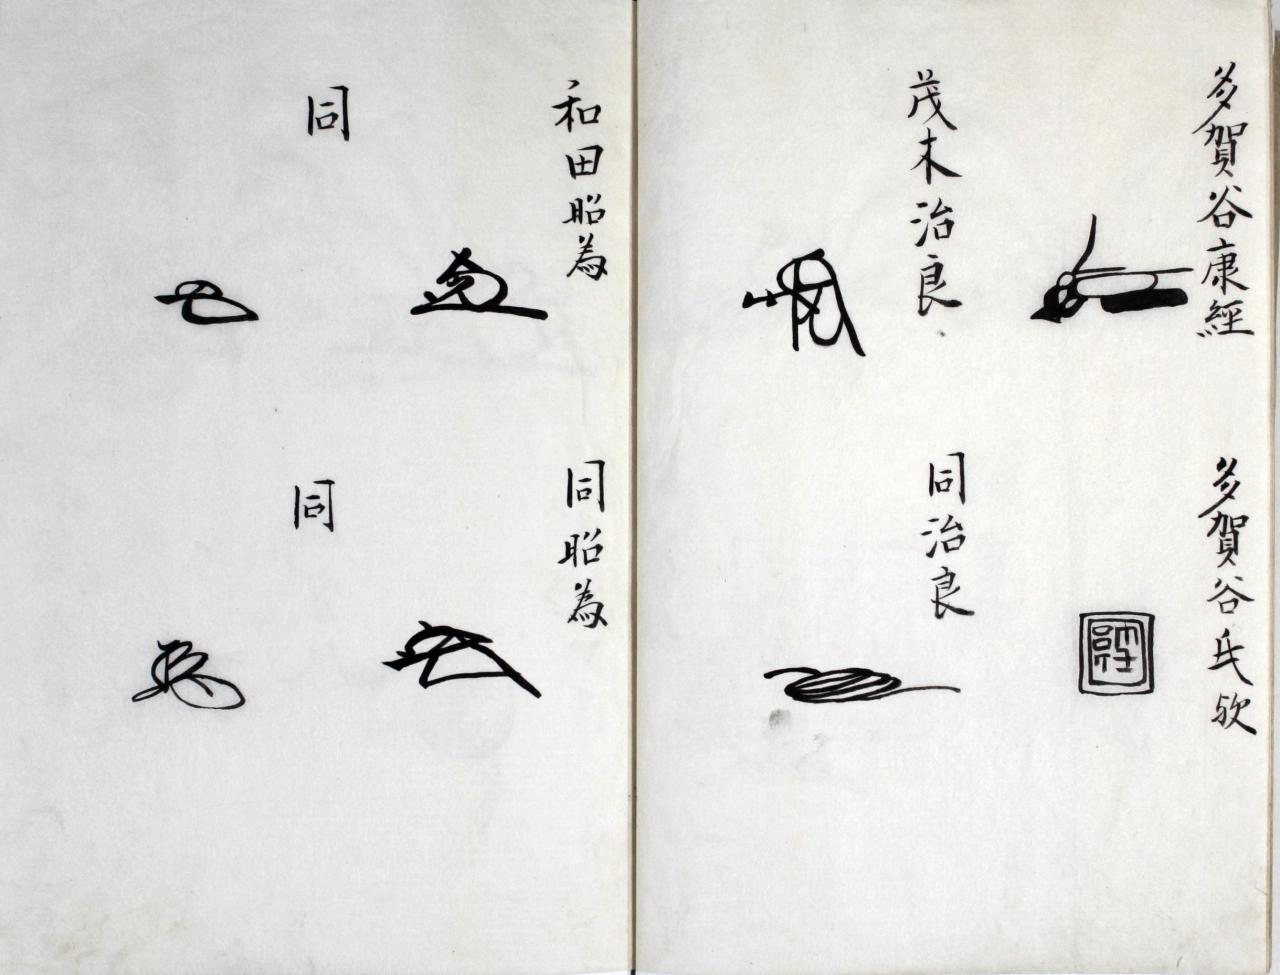 多賀谷康經
多賀谷氏欤
茂木治良
同治良
和田昭為
同昭為
同
同